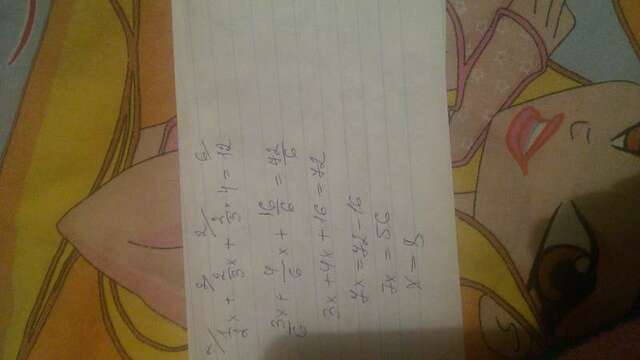 3/ 2/ 2/ 6/
1/2x + 2/3x + 2/3 · 4 = 12
3/6x + 4/6x + 16/6 = 72/6
3x + 4x + 16 = 72
7x = 72 - 16
7x = 56
x = 8